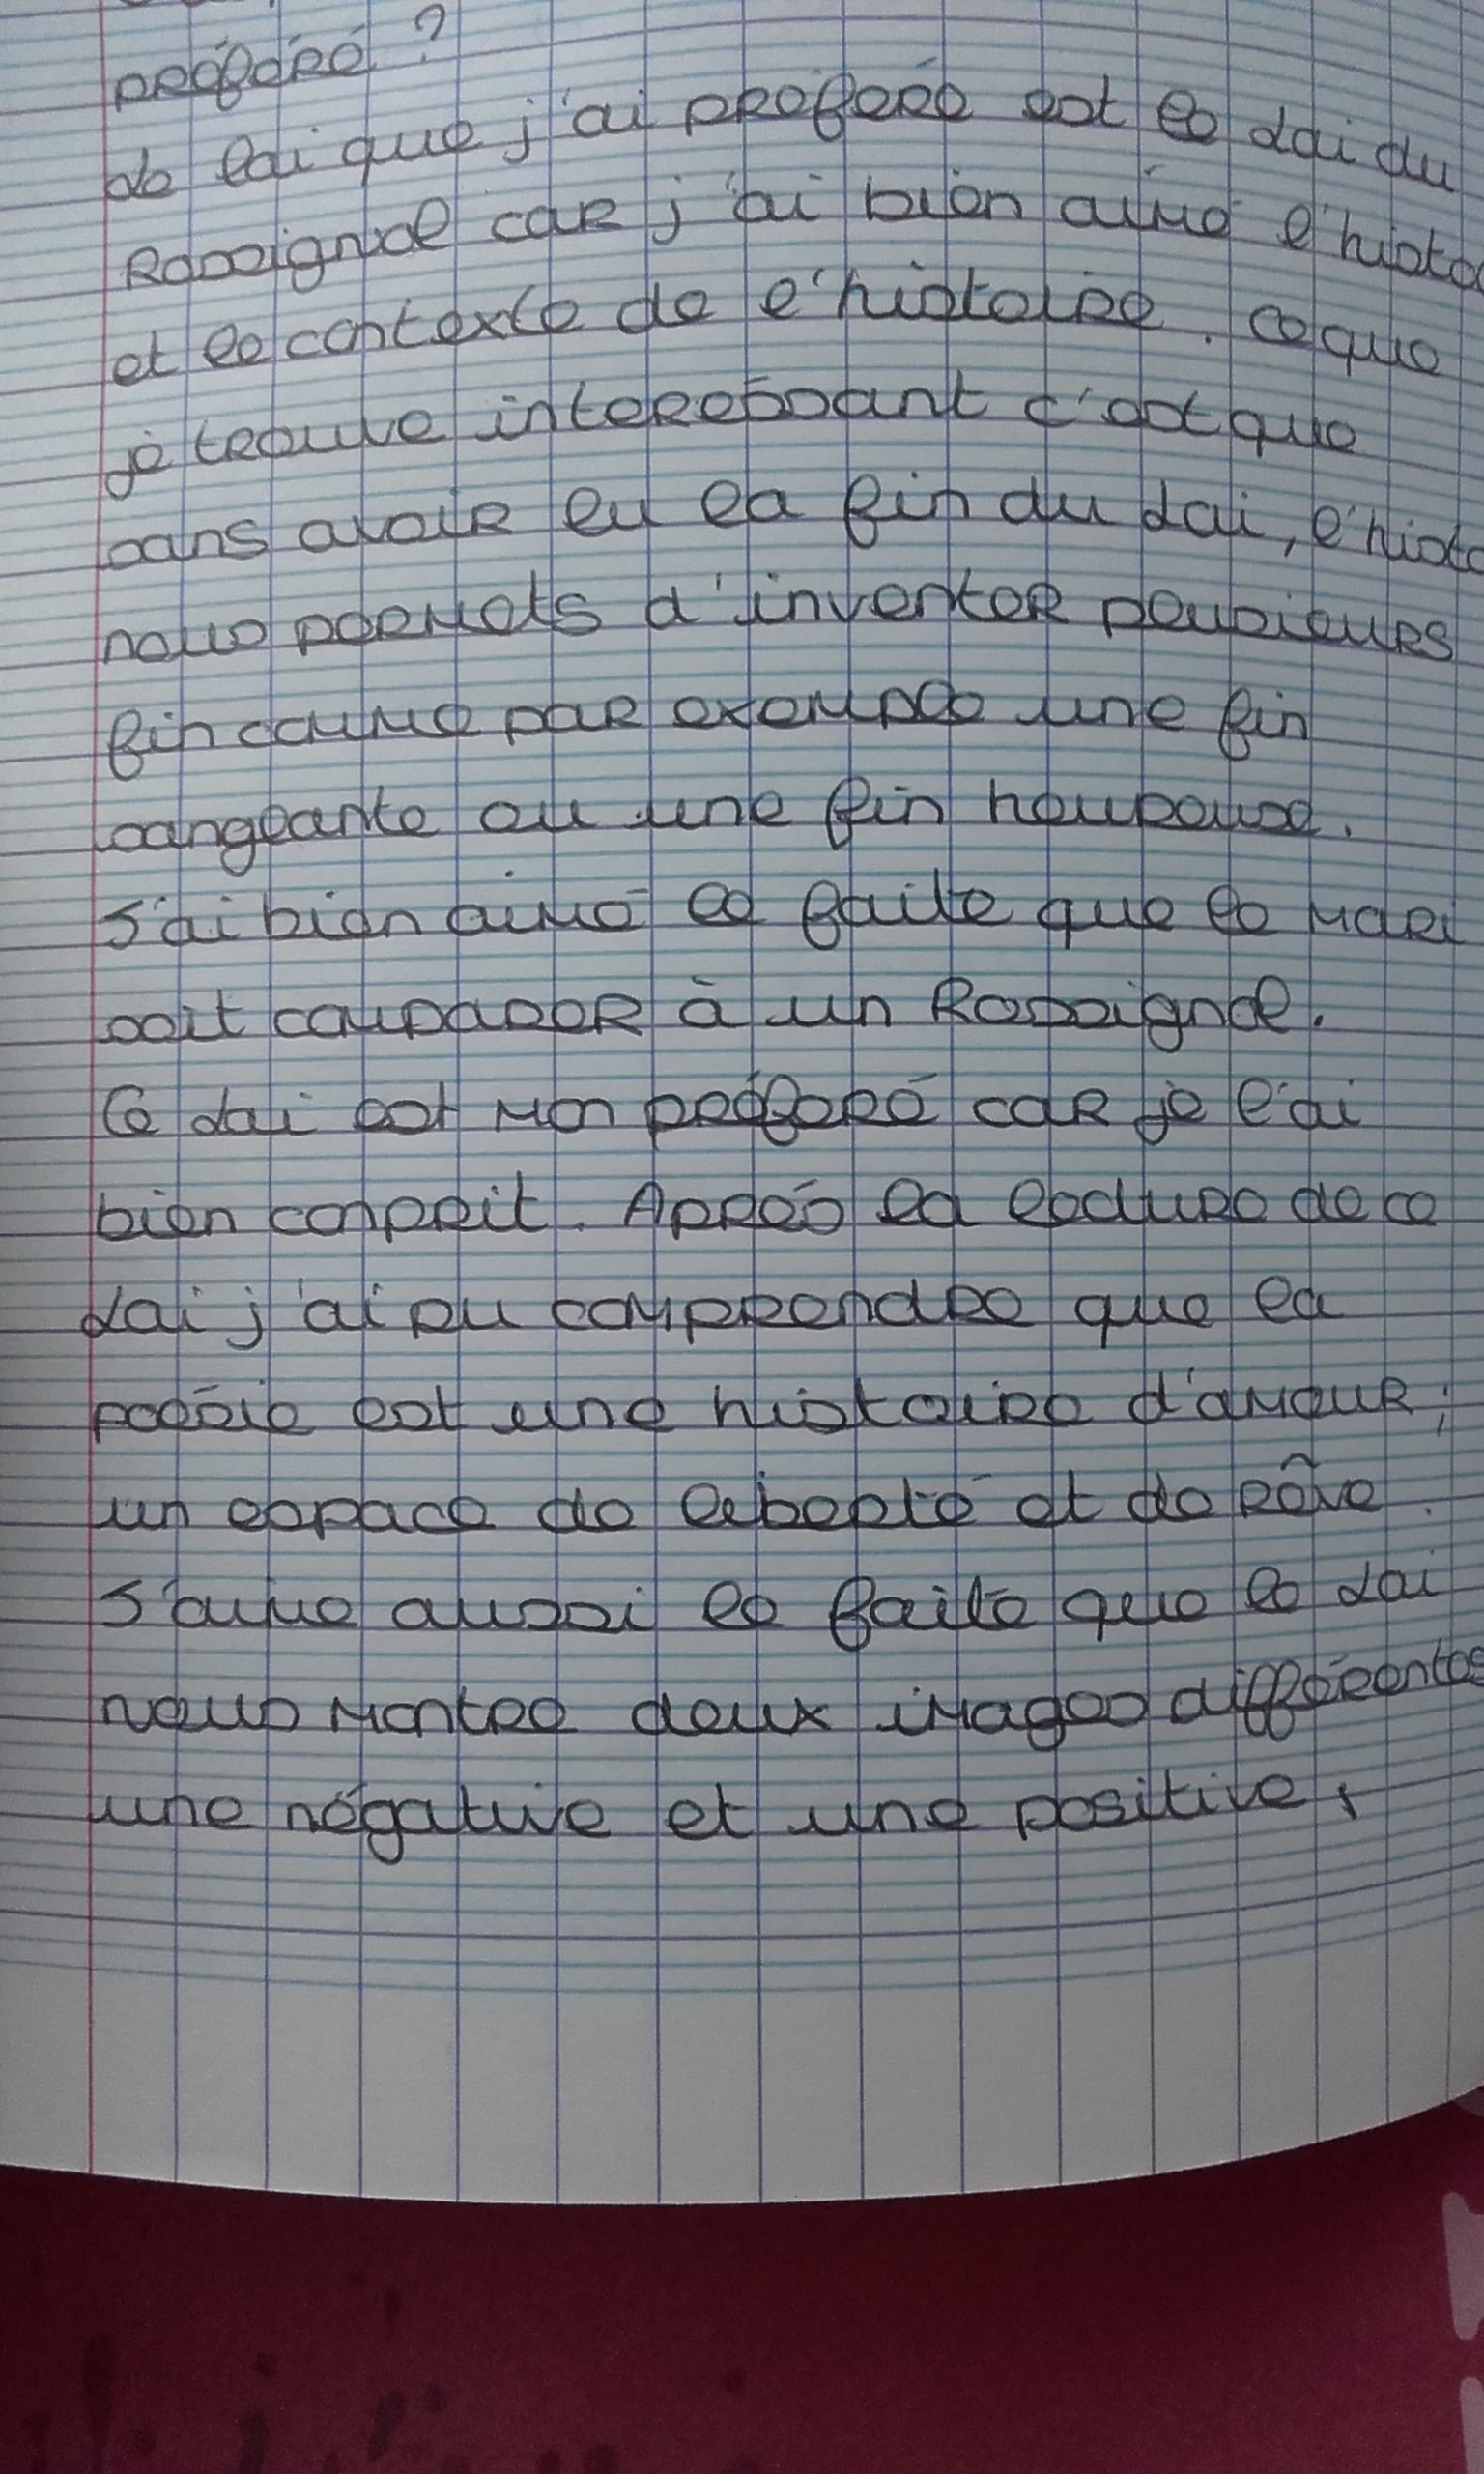 préféré ?
Le lai que j'ai préféré est le Lai du
Rossignol car j'ai bien aimé
et le contexte de l'histoire. Ce que
je trouve interessant c'est que
sans avoir lu la fin du Lai,
nous permets d'inventer plusieurs
fin comme par exemple une fin
sangeante ou une fin heureuse.
J'ai bien aimé le faite que le mari
soit comparer à un Rossignol.
Ce Lai est mon préféré car je l'ai
bien comprit. Après la lecture de ce
Lai j'ai pu comprendre que la
poésie est une histoire d'amour,
un espace de liberté et de rêve.
J'aime aussi le faite que le Lai
nous montre deux images différentes
une négative et une positive,